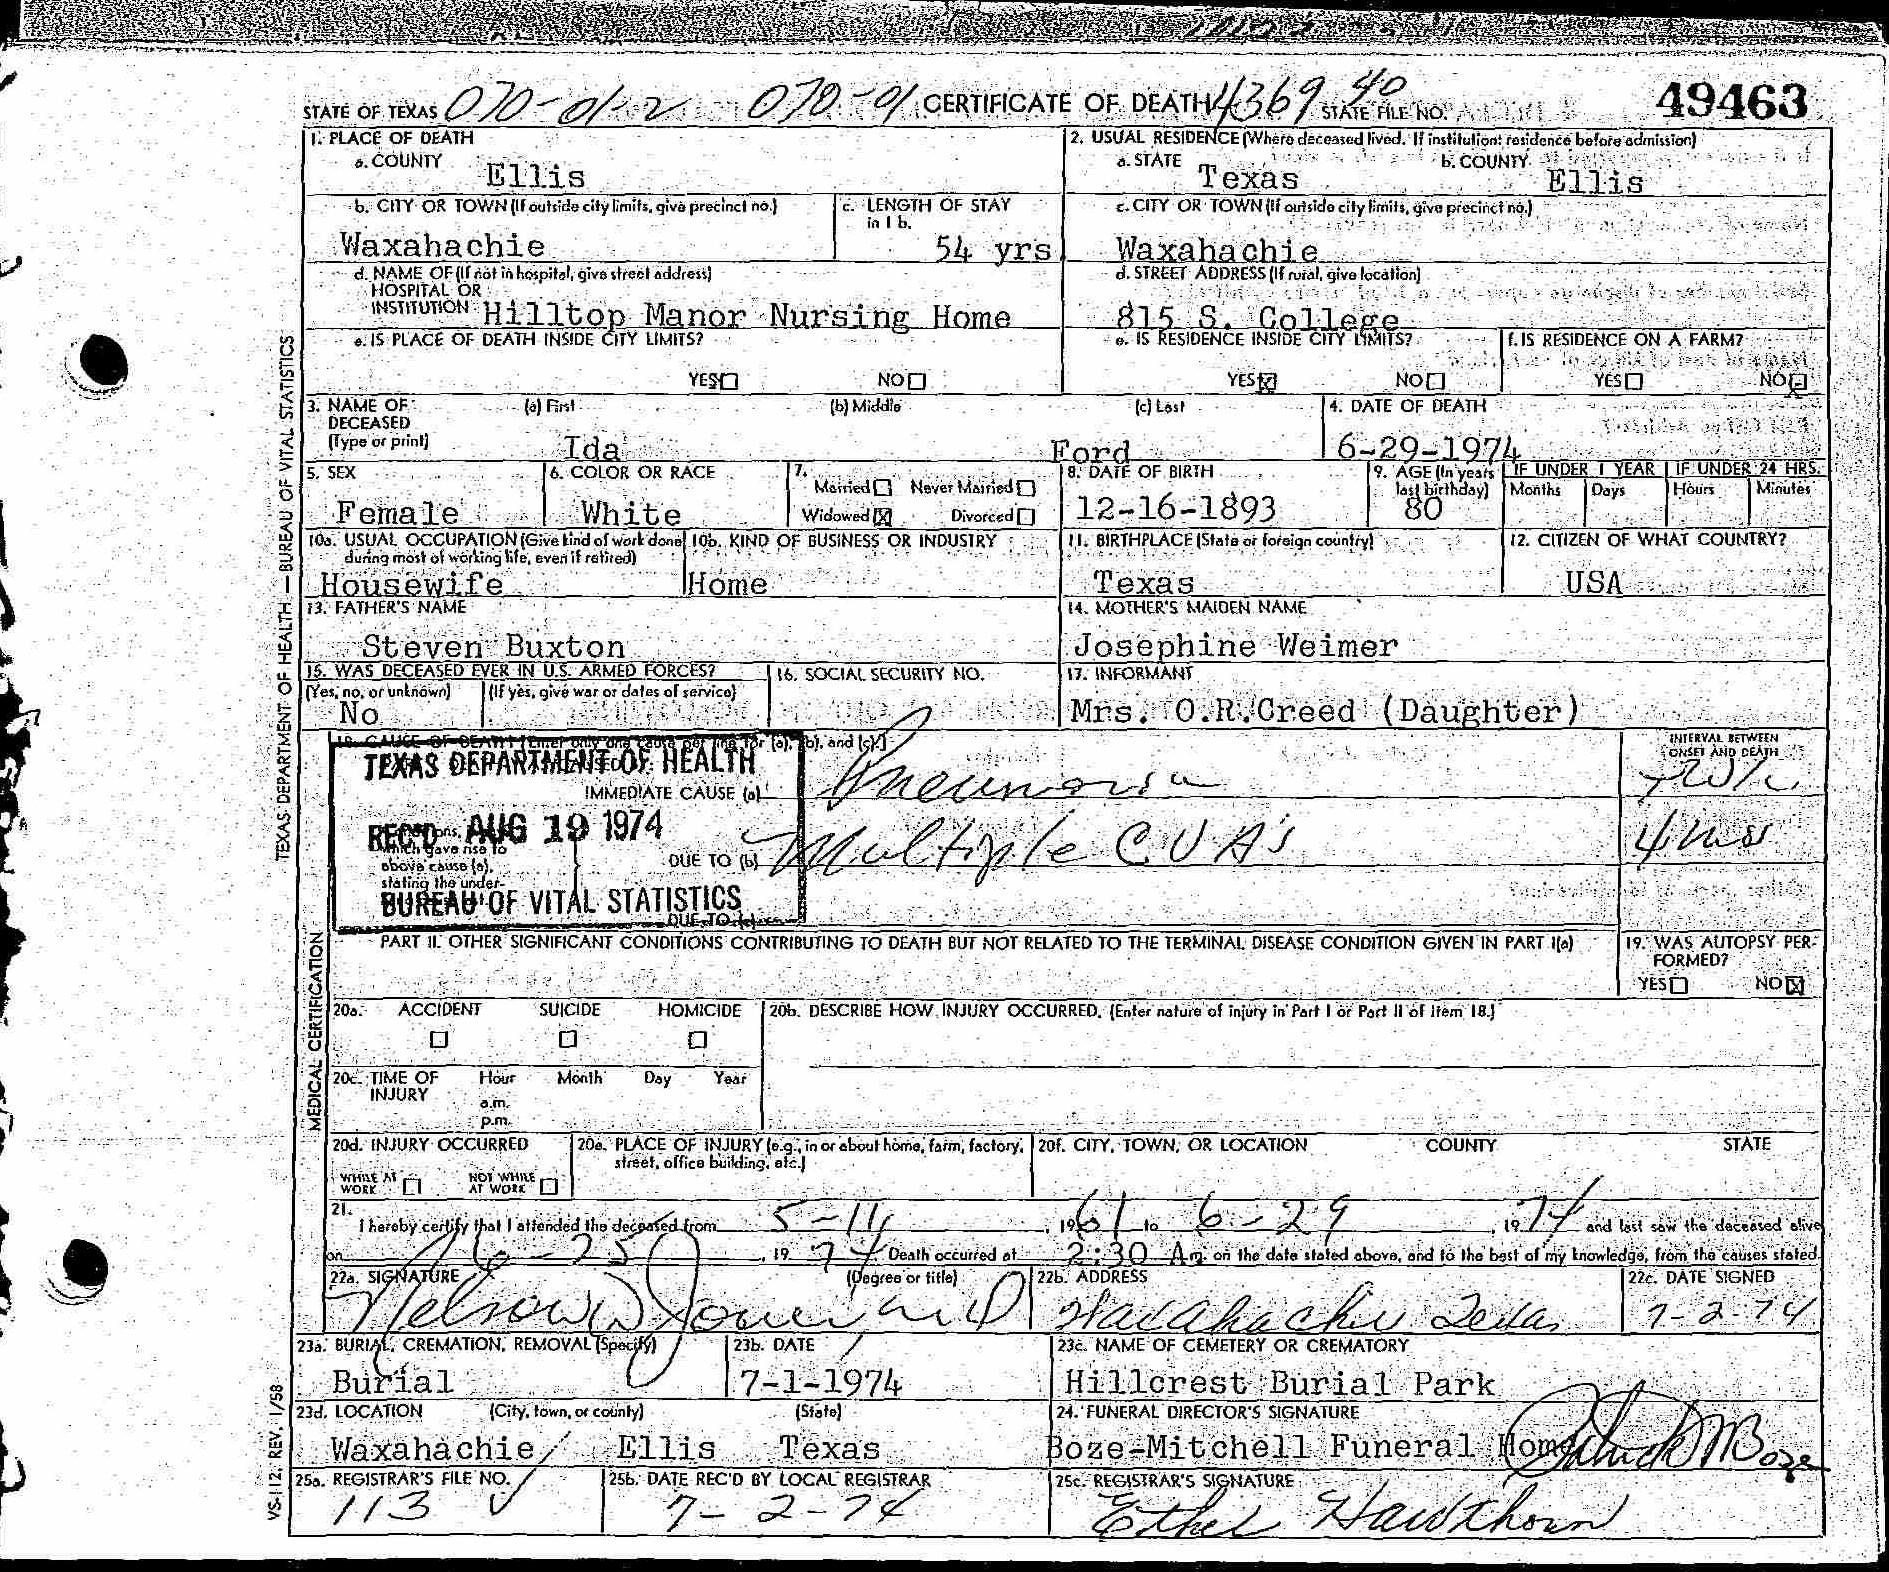 STATE OF TEXAS 070-01-2 070-01 CERTIFICATE OF DEATH 4369 40 STATE FILE NO. 49463
1. PLACE OF DEATH
a. COUNTY
Ellis
2. USUAL RESIDENCE (Where deceased lived. If institution: residence before admission)
a. STATE b. COUNTY
Texas Ellis
b. CITY OR TOWN (If outside city limits, give precinct no.)
Waxahachie
c. LENGTH OF STAY
in 1 b.
54 yrs
c. CITY OR TOWN (If outside city limits, give precinct no.)
Waxahachie
d. NAME OF (If not in hospital, give street address)
HOSPITAL OR
INSTITUTION Hilltop Manor Nursing Home
d. STREET ADDRESS (If rural, give location)
815 S. College
e. IS PLACE OF DEATH INSIDE CITY LIMITS?
YES NO
e. IS RESIDENCE INSIDE CITY LIMITS?
YES X NO
f. IS RESIDENCE ON A FARM?
YES NO X
3. NAME OF DECEASED
(Type or print)
(a) First (b) Middle (c) Last
Ida Ford
4. DATE OF DEATH
6-29-1974
5. SEX
Female
6. COLOR OR RACE
White
7.
Married Never Married
Widowed X Divorced
8. DATE OF BIRTH
12-16-1893
9. AGE (In years
last birthday)
80
IF UNDER 1 YEAR IF UNDER 24 HRS.
Months Days Hours Minutes
10a. USUAL OCCUPATION (Give kind of work done
during most of working life, even if retired)
Housewife
10b. KIND OF BUSINESS OR INDUSTRY
Home
11. BIRTHPLACE (State or foreign country)
Texas
12. CITIZEN OF WHAT COUNTRY?
USA
13. FATHER'S NAME
Steven Buxton
14. MOTHER'S MAIDEN NAME
Josephine Weimer
15. WAS DECEASED EVER IN U.S. ARMED FORCES?
(Yes, no, or unknown) (If yes, give war or dates of service)
No
16. SOCIAL SECURITY NO.
17. INFORMANT
Mrs. O.R.Creed (Daughter)
18. CAUSE OF DEATH (Enter only one cause per line for (a), (b), and (c).)
INTERVAL BETWEEN
ONSET AND DEATH
TEXAS DEPARTMENT OF HEALTH
IMMEDIATE CAUSE (a) Pneumonia
REC'D AUG 19 1974
which gave rise to
above cause (a),
stating the under-
DUE TO (b) Multiple CVA's 4 mos
BUREAU OF VITAL STATISTICS
DUE TO (c)
PART II. OTHER SIGNIFICANT CONDITIONS CONTRIBUTING TO DEATH BUT NOT RELATED TO THE TERMINAL DISEASE CONDITION GIVEN IN PART I(a)
19. WAS AUTOPSY PER-
FORMED?
YES NO X
20a. ACCIDENT SUICIDE HOMICIDE
20b. DESCRIBE HOW INJURY OCCURRED. (Enter nature of injury in Part I or Part II of item 18.)
20c. TIME OF INJURY
Hour Month Day Year
a.m.
p.m.
20d. INJURY OCCURRED
WHILE AT WORK NOT WHILE AT WORK
20e. PLACE OF INJURY (e.g., in or about home, farm, factory,
street, office building, etc.)
20f. CITY, TOWN, OR LOCATION COUNTY STATE
21.
I hereby certify that I attended the deceased from 5-11, 1961 to 6-29, 1974 and last saw the deceased alive
on 6-25, 1974 Death occurred at 2:30 A.m. on the date stated above, and to the best of my knowledge, from the causes stated.
22a. SIGNATURE (Degree or title)
Nelson W Jones MD
22b. ADDRESS
Waxahachie Texas
22c. DATE SIGNED
7-2-74
23a. BURIAL, CREMATION, REMOVAL (Specify)
Burial
23b. DATE
7-1-1974
23c. NAME OF CEMETERY OR CREMATORY
Hillcrest Burial Park
23d. LOCATION (City, town, or county) (State)
Waxahachie Ellis Texas
24. FUNERAL DIRECTOR'S SIGNATURE
Boze-Mitchell Funeral Home Boze
25a. REGISTRAR'S FILE NO.
113
25b. DATE REC'D BY LOCAL REGISTRAR
7-2-74
25c. REGISTRAR'S SIGNATURE
Ethel Hawthorn
TEXAS DEPARTMENT OF HEALTH — BUREAU OF VITAL STATISTICS
MEDICAL CERTIFICATION
VS-112, REV. 1/58